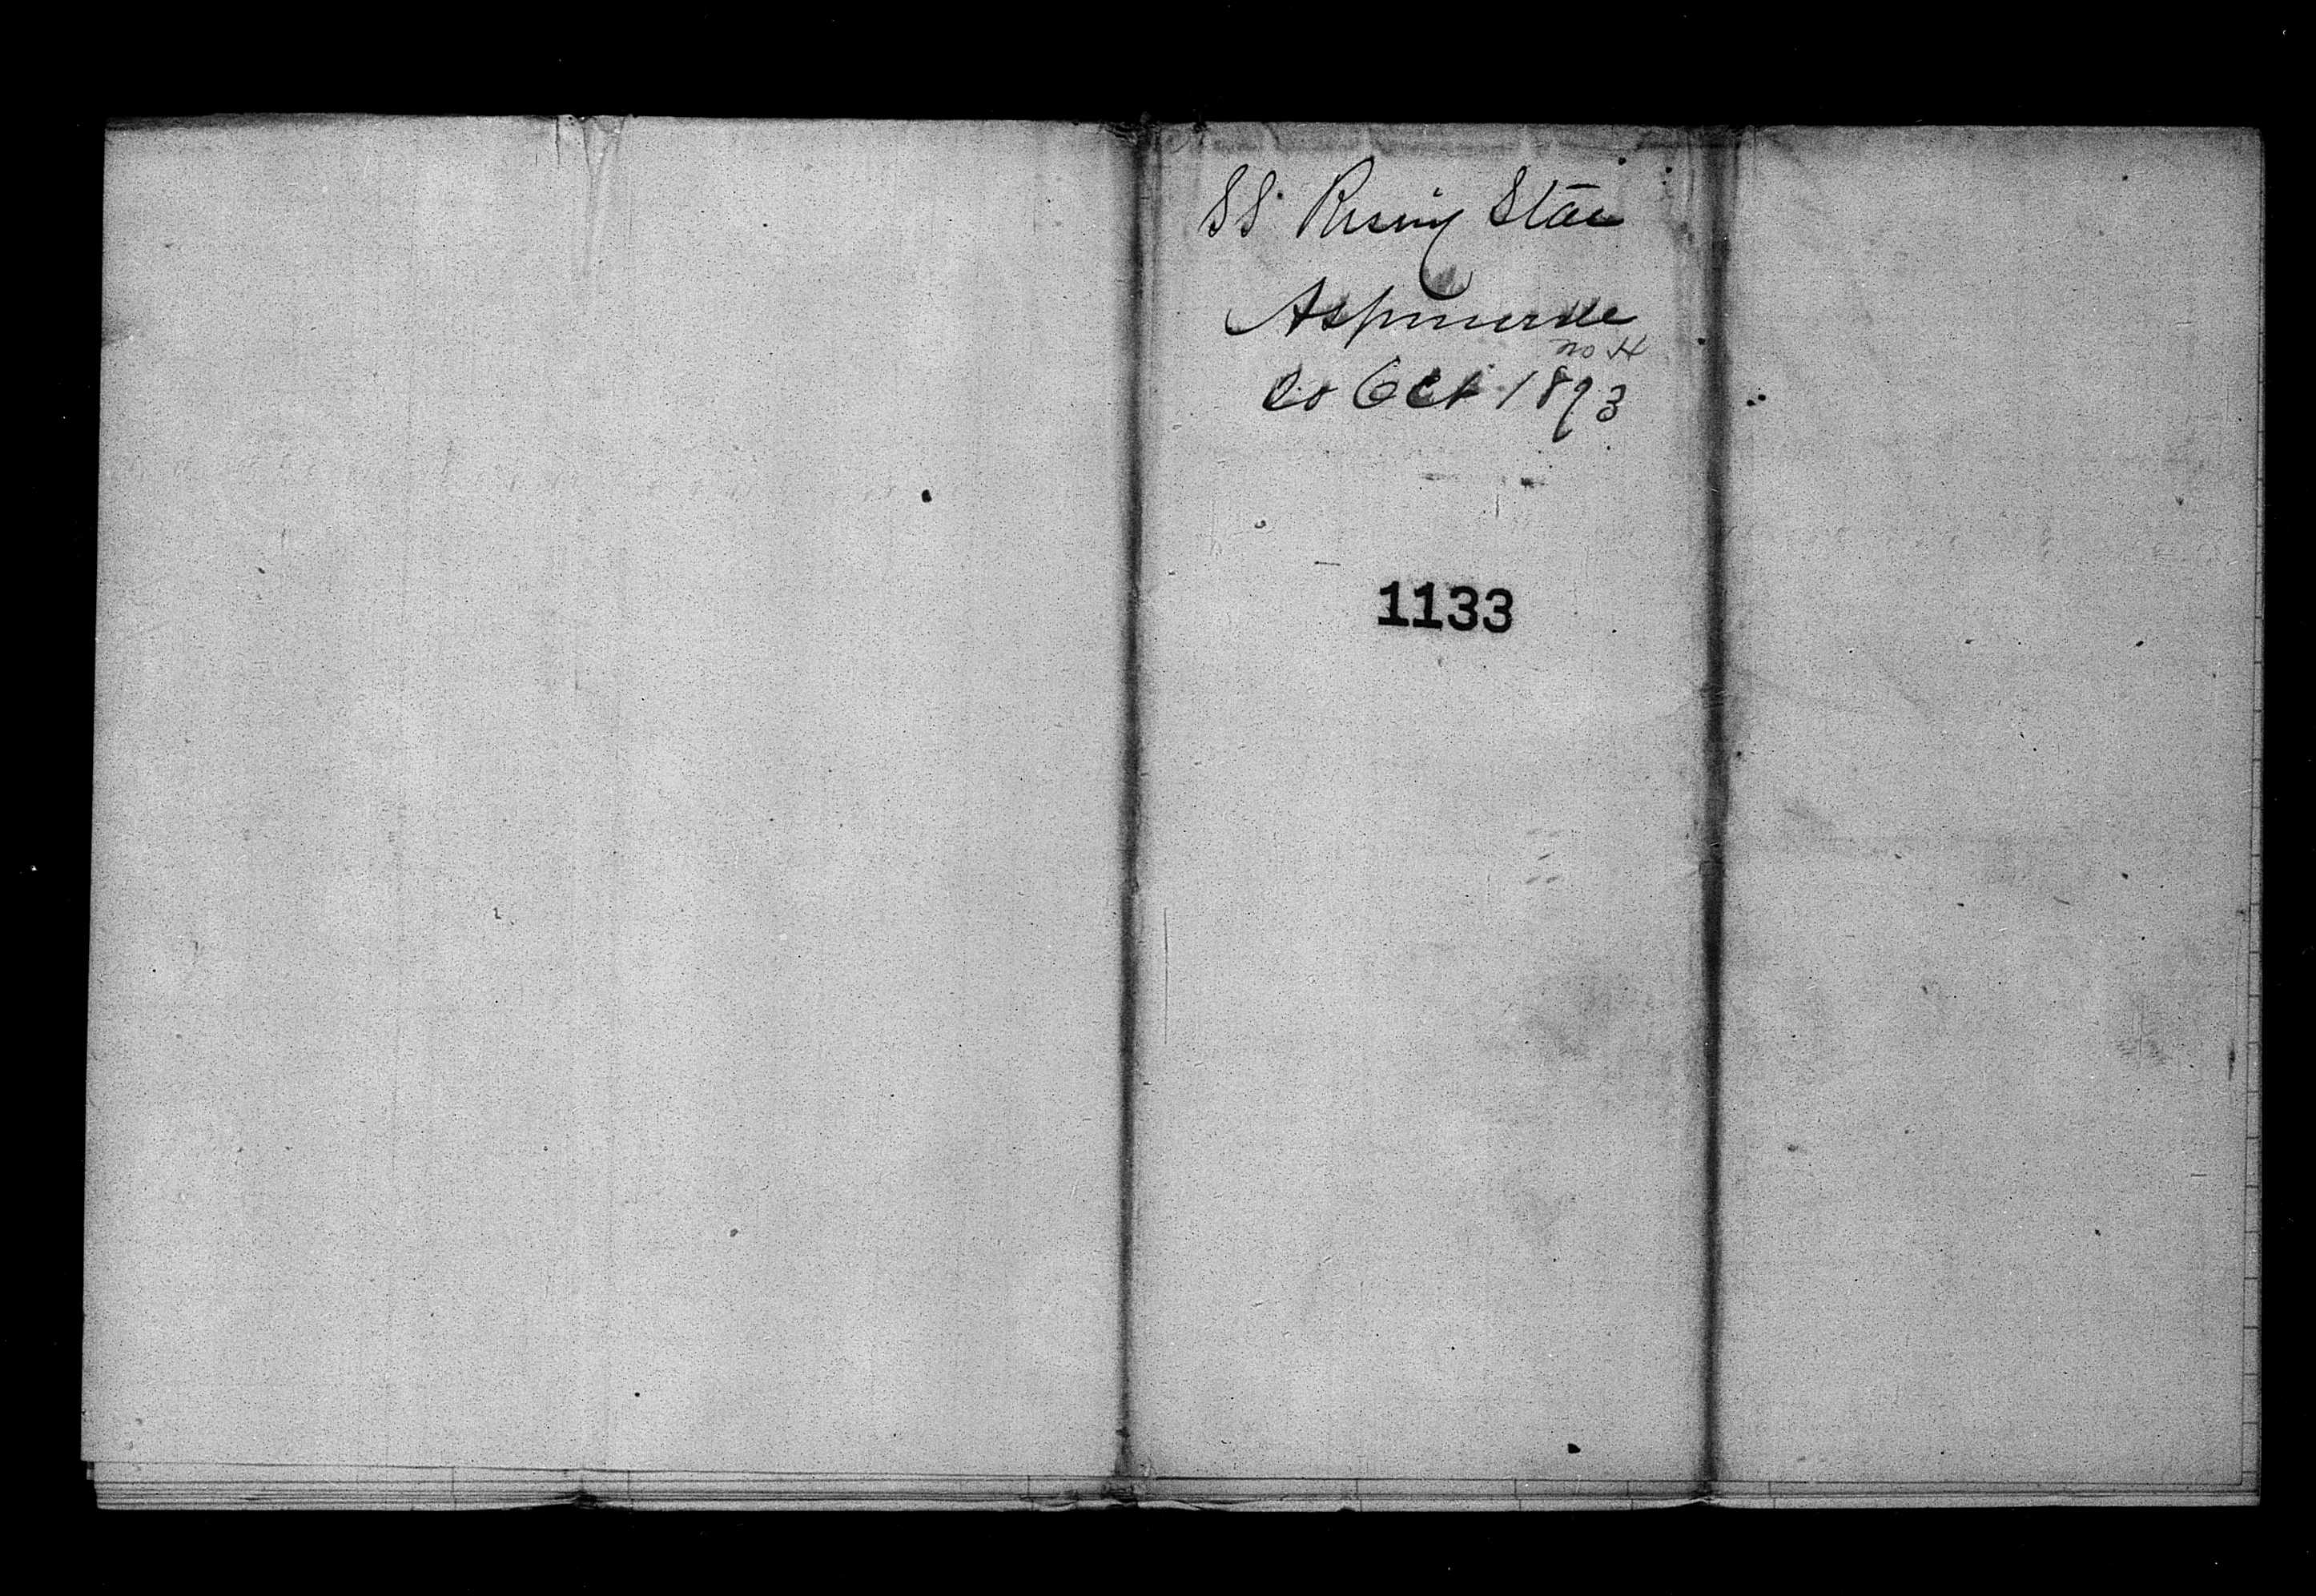 SS. Rising Star
Aspinwall
no 4
20 Oct 1873
1133